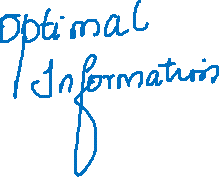 Optimal
Information